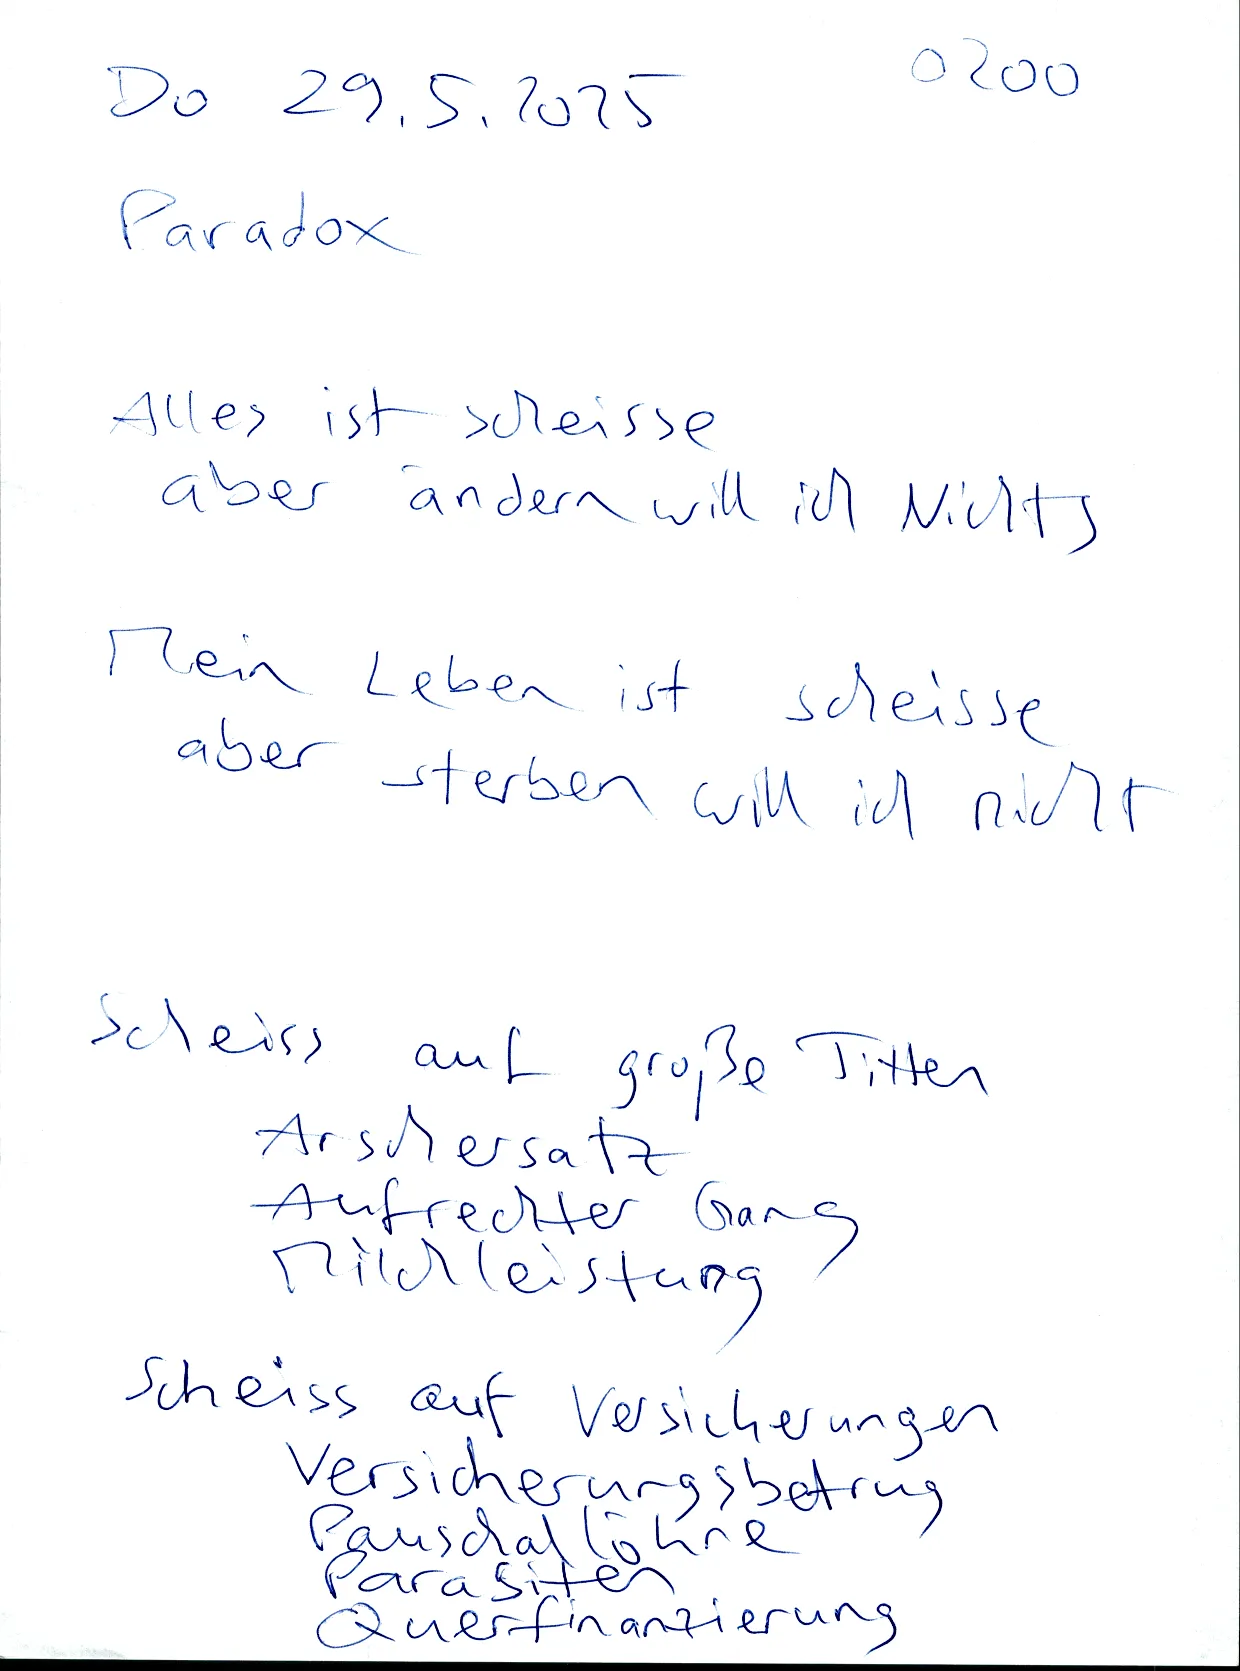 Do 29.5.2025 0200
Paradox
Alles ist scheisse
aber ändern will ich Nichts
Mein Leben ist scheisse
aber sterben will ich nicht
Scheiss auf große Titten
Arschersatz
Aufrechter Gang
Milchleistung
Scheiss auf Versicherungen
Versicherungsbetrug
Pauschallöhne
Parasiten
Querfinanzierung